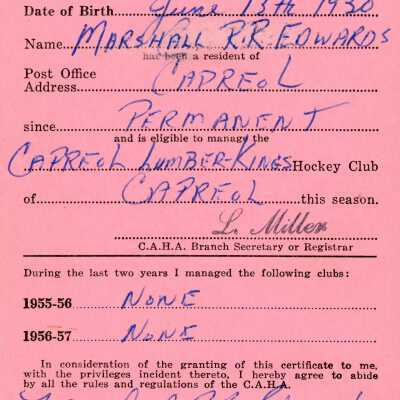 Date of Birth June 13th 1930
Name MARSHALL R.R. EDWARDS
has been a resident of
Post Office
Address CAPREOL
since PERMANENT
and is eligible to manage the
CAPREOL LUMBER-KINGS Hockey Club
of CAPREOL this season.
L. Miller
C.A.H.A. Branch Secretary or Registrar
During the last two years I managed the following clubs:
1955-56 NONE
1956-57 NONE
In consideration of the granting of this certificate to me,
with the privileges incident thereto, I hereby agree to abide
by all the rules and regulations of the C.A.H.A.